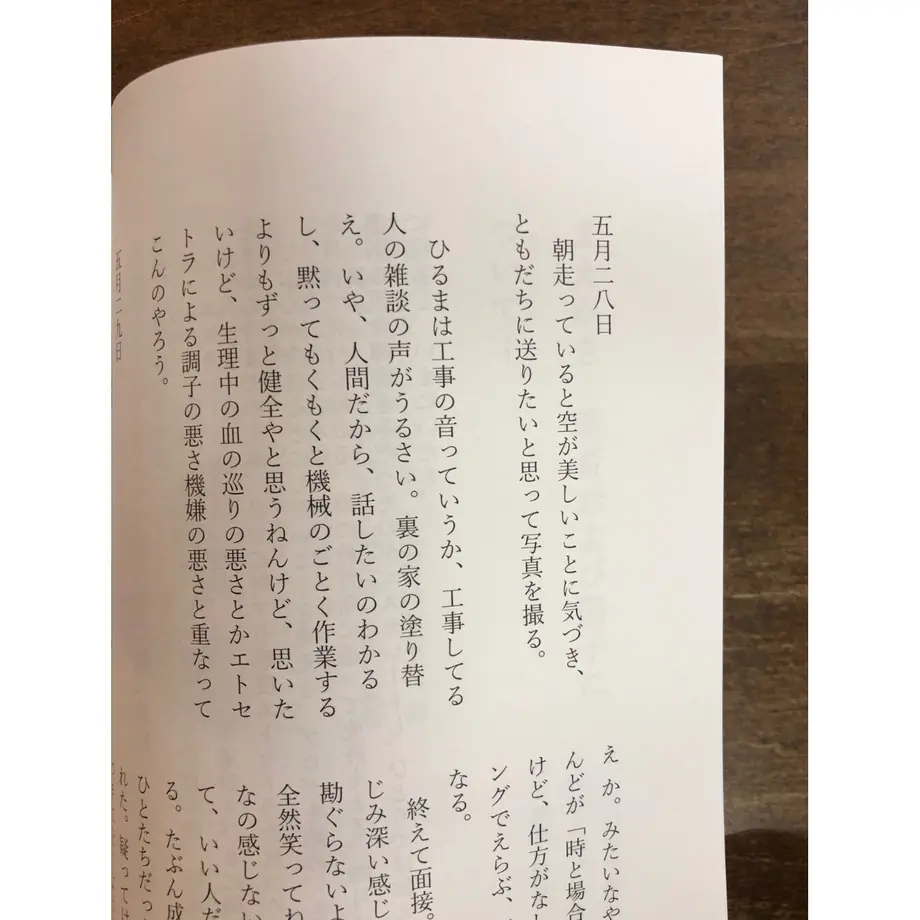 五月二八日
朝走っていると空が美しいことに気づき、
ともだちに送りたいと思って写真を撮る。
ひるまは工事の音っていうか、工事してる
人の雑談の声がうるさい。裏の家の塗り替
え。いや、人間だから、話したいのわかる
し、黙ってもくもくと機械のごとく作業する
よりもずっと健全やと思うねんけど、思いた
いけど、生理中の血の巡りの悪さとかエトセ
トラによる調子の悪さ機嫌の悪さと重なって
こんのやろう。
五月二九日
えか。みたいなや
んどが「時と場合
けど、仕方がなし
ングでえらぶ、
なる。
終えて面接。
じみ深い感じ
勘ぐらないよ
全然笑ってわ
なの感じない
て、いい人だ
る。たぶん成
ひとたちだっ
れた。疑っては